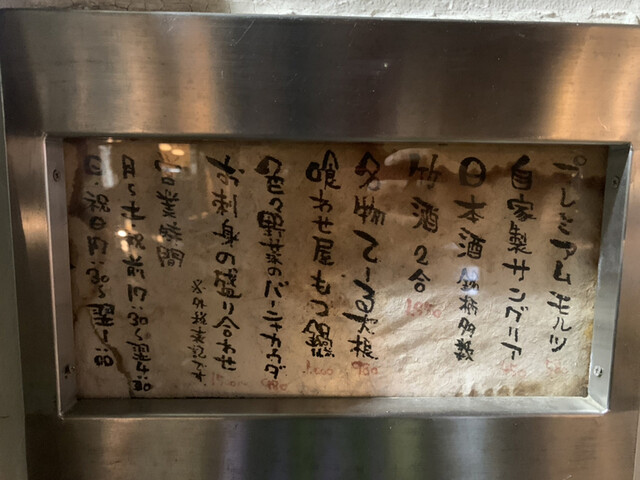 プレミアムモルツ
自家製サングリア
日本酒 銘柄多数
竹酒 2合 1,850
名物 大根 930
喰わせ屋もつ鍋 1,200
色々野菜のバーニャカウダ 980
お刺身の盛り合わせ
※外税表記
営業時間
月〜土・祝前 17:30〜
日・祝日 17:30〜